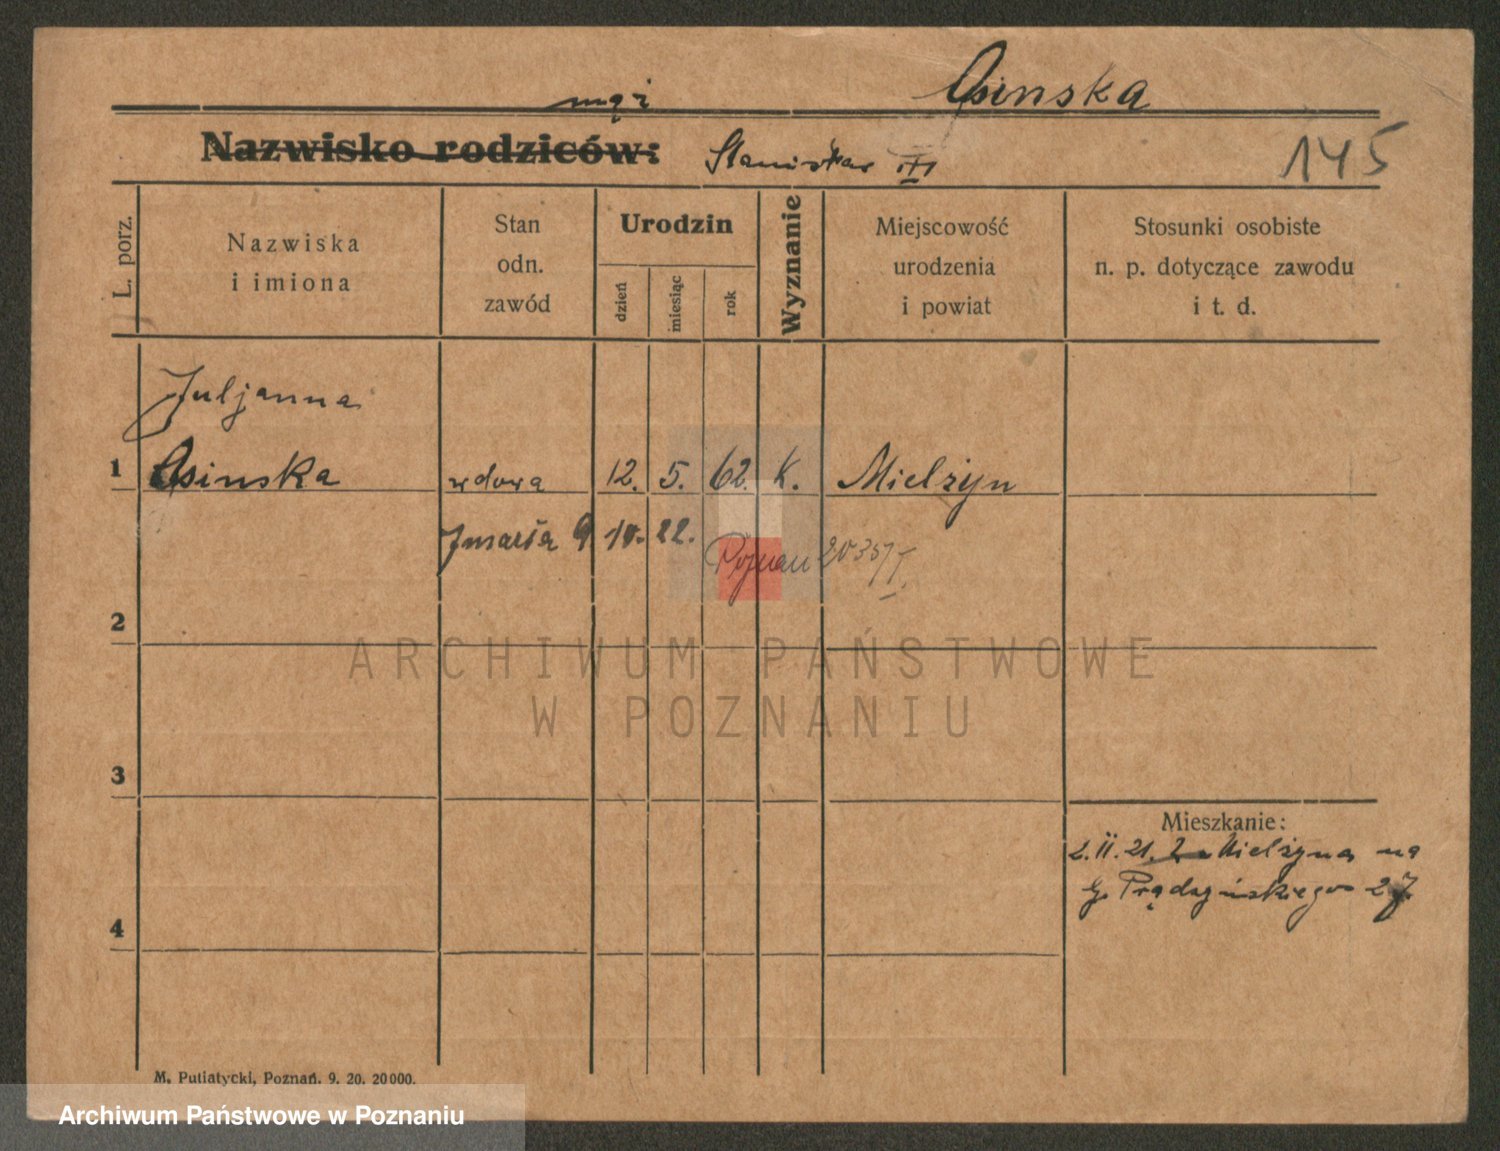 mąż Osinska
Nazwisko rodziców: Stanisław
145
L. porz.
Nazwiska
i imiona
Stan
odn.
zawód
Urodzin
dzień
miesiąc
rok
Wyznanie
Miejscowość
urodzenia
i powiat
Stosunki osobiste
n. p. dotyczące zawodu
i t. d.
Juljanna
1 Osinska wdowa 12. 5. 62. K. Mielżyn
Zmarła 9 10. 22. Poznan
2
ARCHIWUM PAŃSTWOWE
W POZNANIU
3
Mieszkanie:
2.II.21. Z Mielżyna na
G. Prądzyńskiego 27.
4
M. Putiatycki, Poznań. 9. 20. 20000.
Archiwum Państwowe w Poznaniu